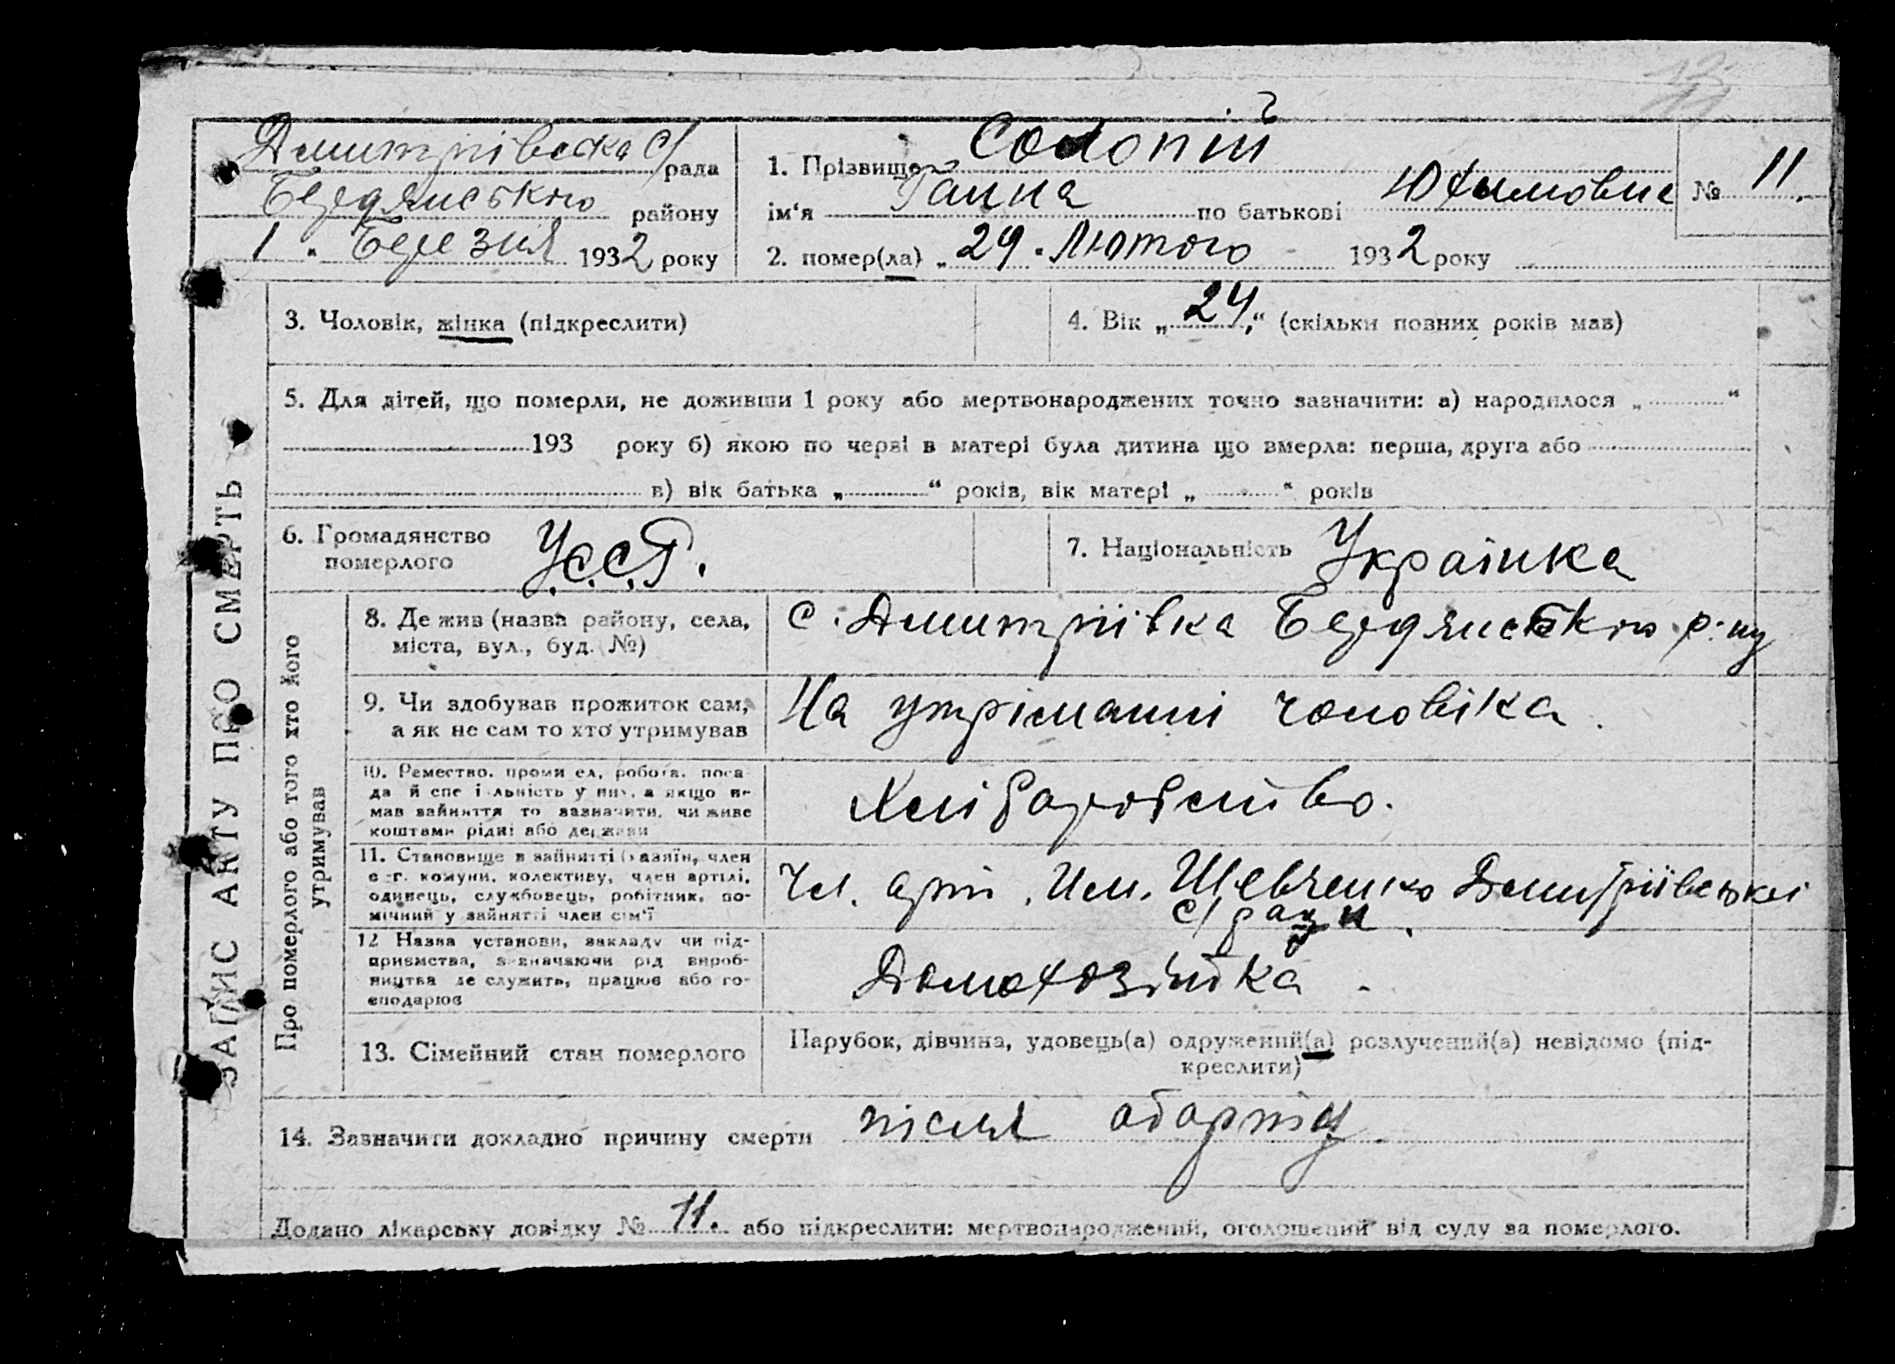 Дмитрівська с/рада
Бердянського району
1 " Березня 1932 року
1. Прізвище Солопій
ім'я Ганна по батькові Юхимовна
№ 11
2. помер(ла) „ 29 " Лютого 1932 року
ЗАПИС АКТУ ПРО СМЕРТЬ
3. Чоловік, жінка (підкреслити)
4. Вік „ 24 " (скільки повних років мав)
5. Для дітей, що померли, не доживши 1 року або мертвонароджених точно зазначити: а) народилося „ "
193 року б) якою по черзі в матері була дитина що вмерла: перша, друга або
в) вік батька „ " років, вік матері „ " років
6. Громадянство
померлого
УССР.
7. Національність Українка
Про померлого або того хто його
утримував
8. Де жив (назва району, села,
міста, вул., буд. №)
с. Дмитріївка Бердянського р-ну
9. Чи здобував прожиток сам,
а як не сам то хто утримував
На утріманні чоловіка.
10. Ремество, промисел, робота, поса-
да й спеціальність у них, а якщо не
мав зайняття то зазначити, чи живе
коштами рідні або держави
Хліборобство.
11. Становище в зайнятті (хазяїн, член
с.-г. комуни, колективу, член артілі,
одинець, службовець, робітник, по-
мічний у зайнятті член сім'ї
Чл. арт. Им. Шевченко Дмитріївської
с/ради.
12 Назва установи, закладу чи під-
приємства, зазначаючи рід вироб-
ництва де служить, працює або го-
сподарює
Домохозяйка.
13. Сімейний стан померлого
Парубок, дівчина, удовець(а) одружений(а) розлучений(а) невідомо (під-
креслити)
14. Зазначити докладно причину смерти після аборту
Додано лікарську довідку № 11. або підкреслити: мертвонароджений, оголошений від суду за померлого.